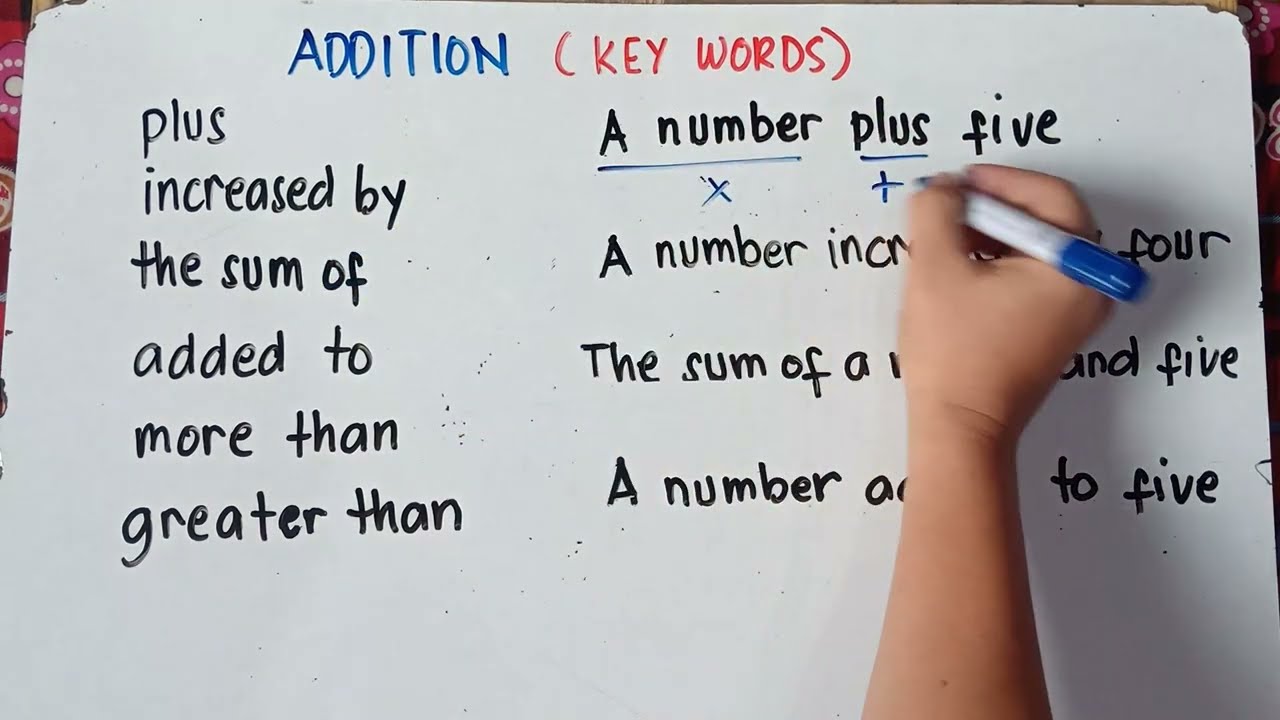 ADDITION (KEY WORDS)
plus
increased by
the sum of
added to
more than
greater than
A number plus five
x +
A number incr four
The sum of a and five
A number to five